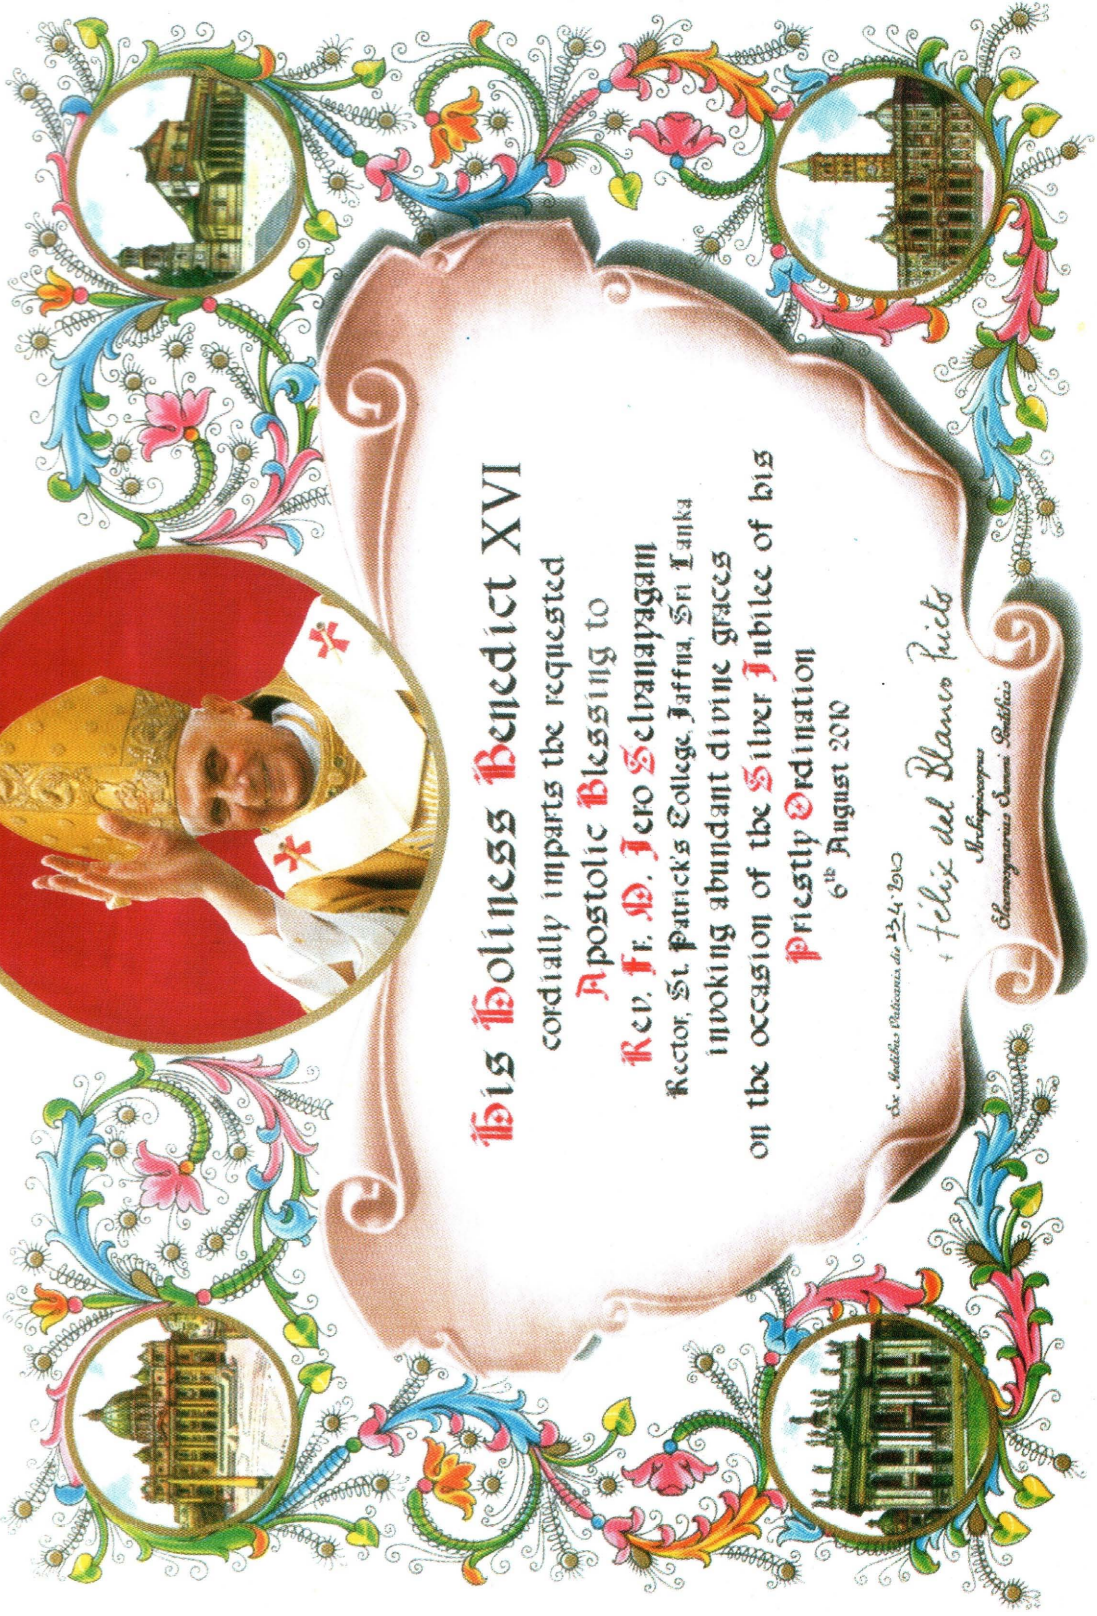 His Holiness Benedict XVI
cordially imparts the requested
Apostolic Blessing to
Rev. Fr. D. Jero Selvanayagam
Rector, St. Patrick's College, Jaffna, Sri Lanka
invoking abundant divine graces
on the occasion of the Silver Jubilee of his
Priestly Ordination
6th August 2010
Ex Aedibus Vaticanis die 23.4.2010
+ Félix del Blanco Prieto
Archiepiscopus
Eleemosynarius Summi Pontificis